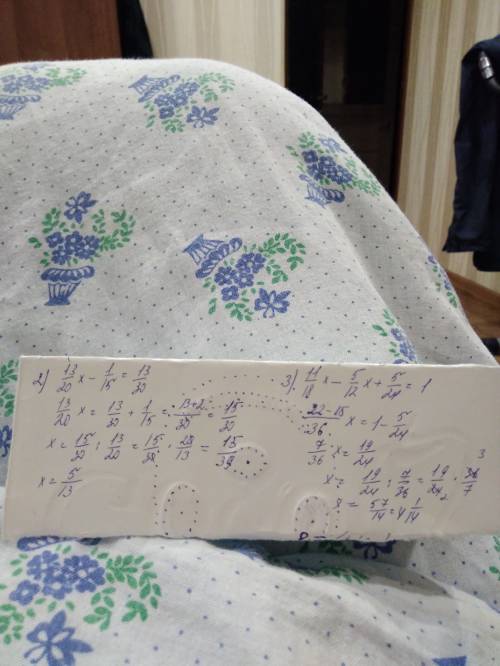 2) 13/20 x - 1/15 = 13/30
13/20 x = 13/30 + 1/15 = 13+2/30 = 15/30
x = 15/30 : 13/20 = 15/30 · 20/13 = 15/39
x = 5/13
3) 11/18 x - 5/12 x + 5/24 = 1
22-15/36 x = 1 - 5/24
7/36 x = 19/24
x = 19/24 : 7/36 = 19/24 2 · 36/7 3
x = 57/14 = 4 1/14